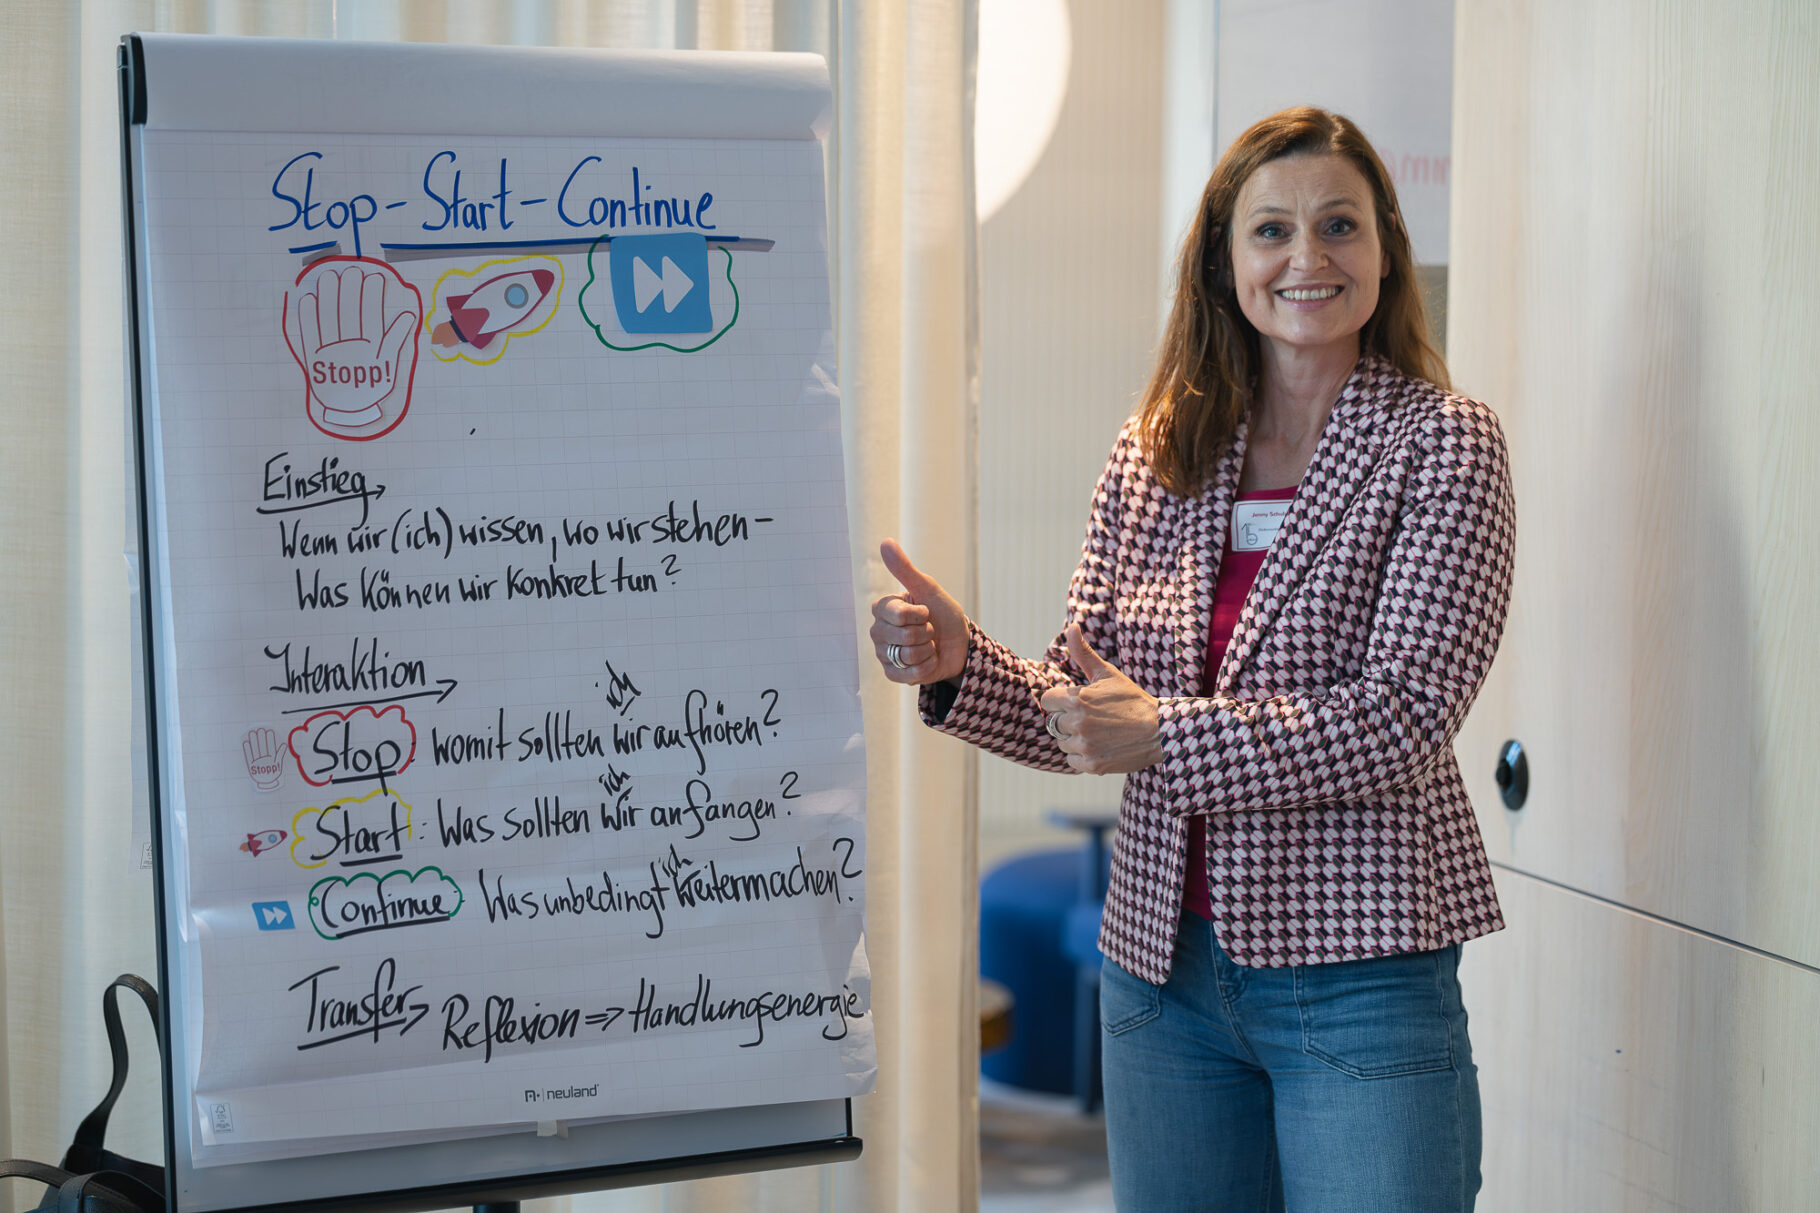 Stop-Start-Continue
Stopp!
Einstieg
Wenn wir (ich) wissen, wo wir stehen –
Was können wir konkret tun?
Interaktion
ich
Stopp!
Stop: Womit sollten wir aufhören?
ich
Start: Was sollten wir anfangen?
ich
Continue Was unbedingt weitermachen?
Transfer Reflexion ⇒ Handlungsenergie
neuland
Jenny